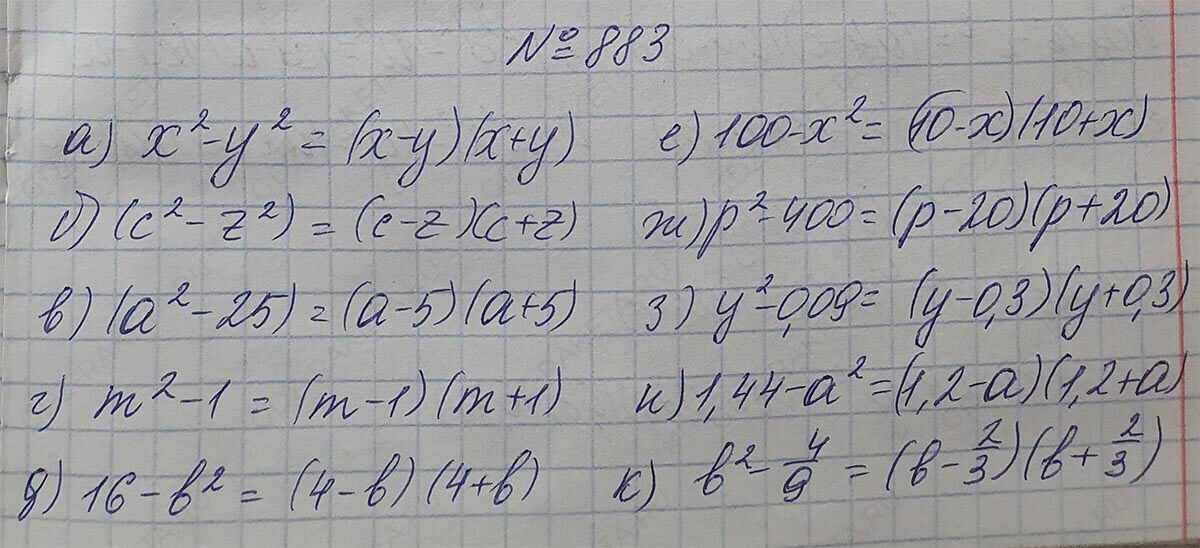 № 883
а) x² - y² = (x-y)(x+y)
б) (c² - z²) = (c-z)(c+z)
в) (a² - 25) = (a-5)(a+5)
г) m² - 1 = (m-1)(m+1)
д) 16 - b² = (4-b)(4+b)
е) 100 - x² = (10-x)(10+x)
ж) p² - 400 = (p-20)(p+20)
з) y² - 0,09 = (y-0,3)(y+0,3)
и) 1,44 - a² = (1,2-a)(1,2+a)
к) b² - 4/9 = (b - 2/3)(b + 2/3)